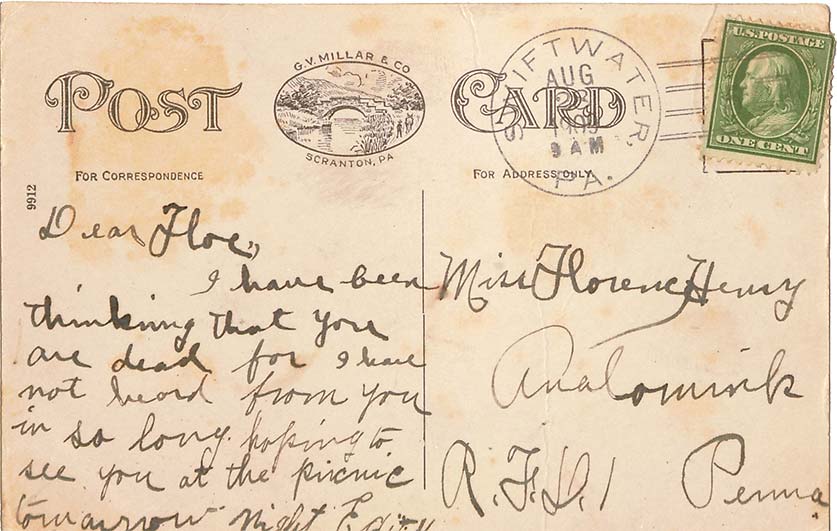 POST CARD
G.V. MILLAR & CO
SCRANTON, PA
FOR CORRESPONDENCE
FOR ADDRESS ONLY
SWIFTWATER,
AUG
1909
9 AM
PA.
U.S. POSTAGE
ONE CENT
9912
Dear Floe,
I have been
thinking that you
are dead for I have
not heard from you
in so long. hoping to
see you at the picnic
tomarrow night Edith
Miss Florence Henry
Analomink
R.F.D. 1 Penna